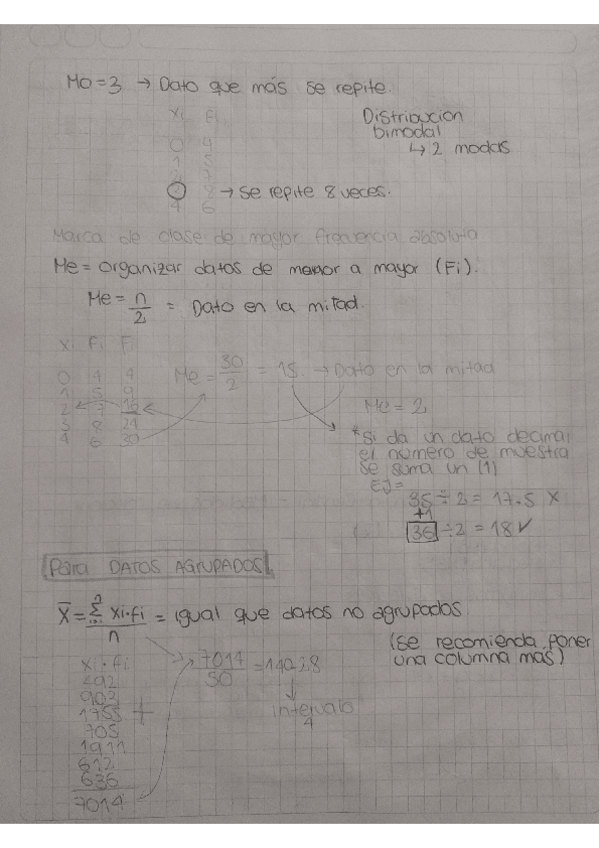 Mo = 3 → Dato que más se repite.
Xi Fi
0 9
1 5
2 7
3 8 → Se repite 8 veces.
4 6
Distribución
bimodal
↳ 2 modas
Marca de clase de mayor frecuencia absoluta
Me = organizar datos de menor a mayor (Fi).
Me = n/2 = Dato en la mitad.
Xi Fi F
0 4 4
1 5 9
2 7 16
3 8 24
4 6 30
Me = 30/2 = 15. → Dato en la mitad
Me = 2
*Si da un dato decimal
el número de muestra
se suma un (1)
EJ=
35 ÷ 2 = 17.5 X
+1
36 ÷ 2 = 18 ✓
Para DATOS AGRUPADOS
X̄ = Σ xi·fi / n = igual que datos no agrupados
(se recomienda poner
una columna más)
Xi · Fi
492
903
1755
705
1911
612
636
7014
→ 7014/50 = 140.28
↓
intervalo
4